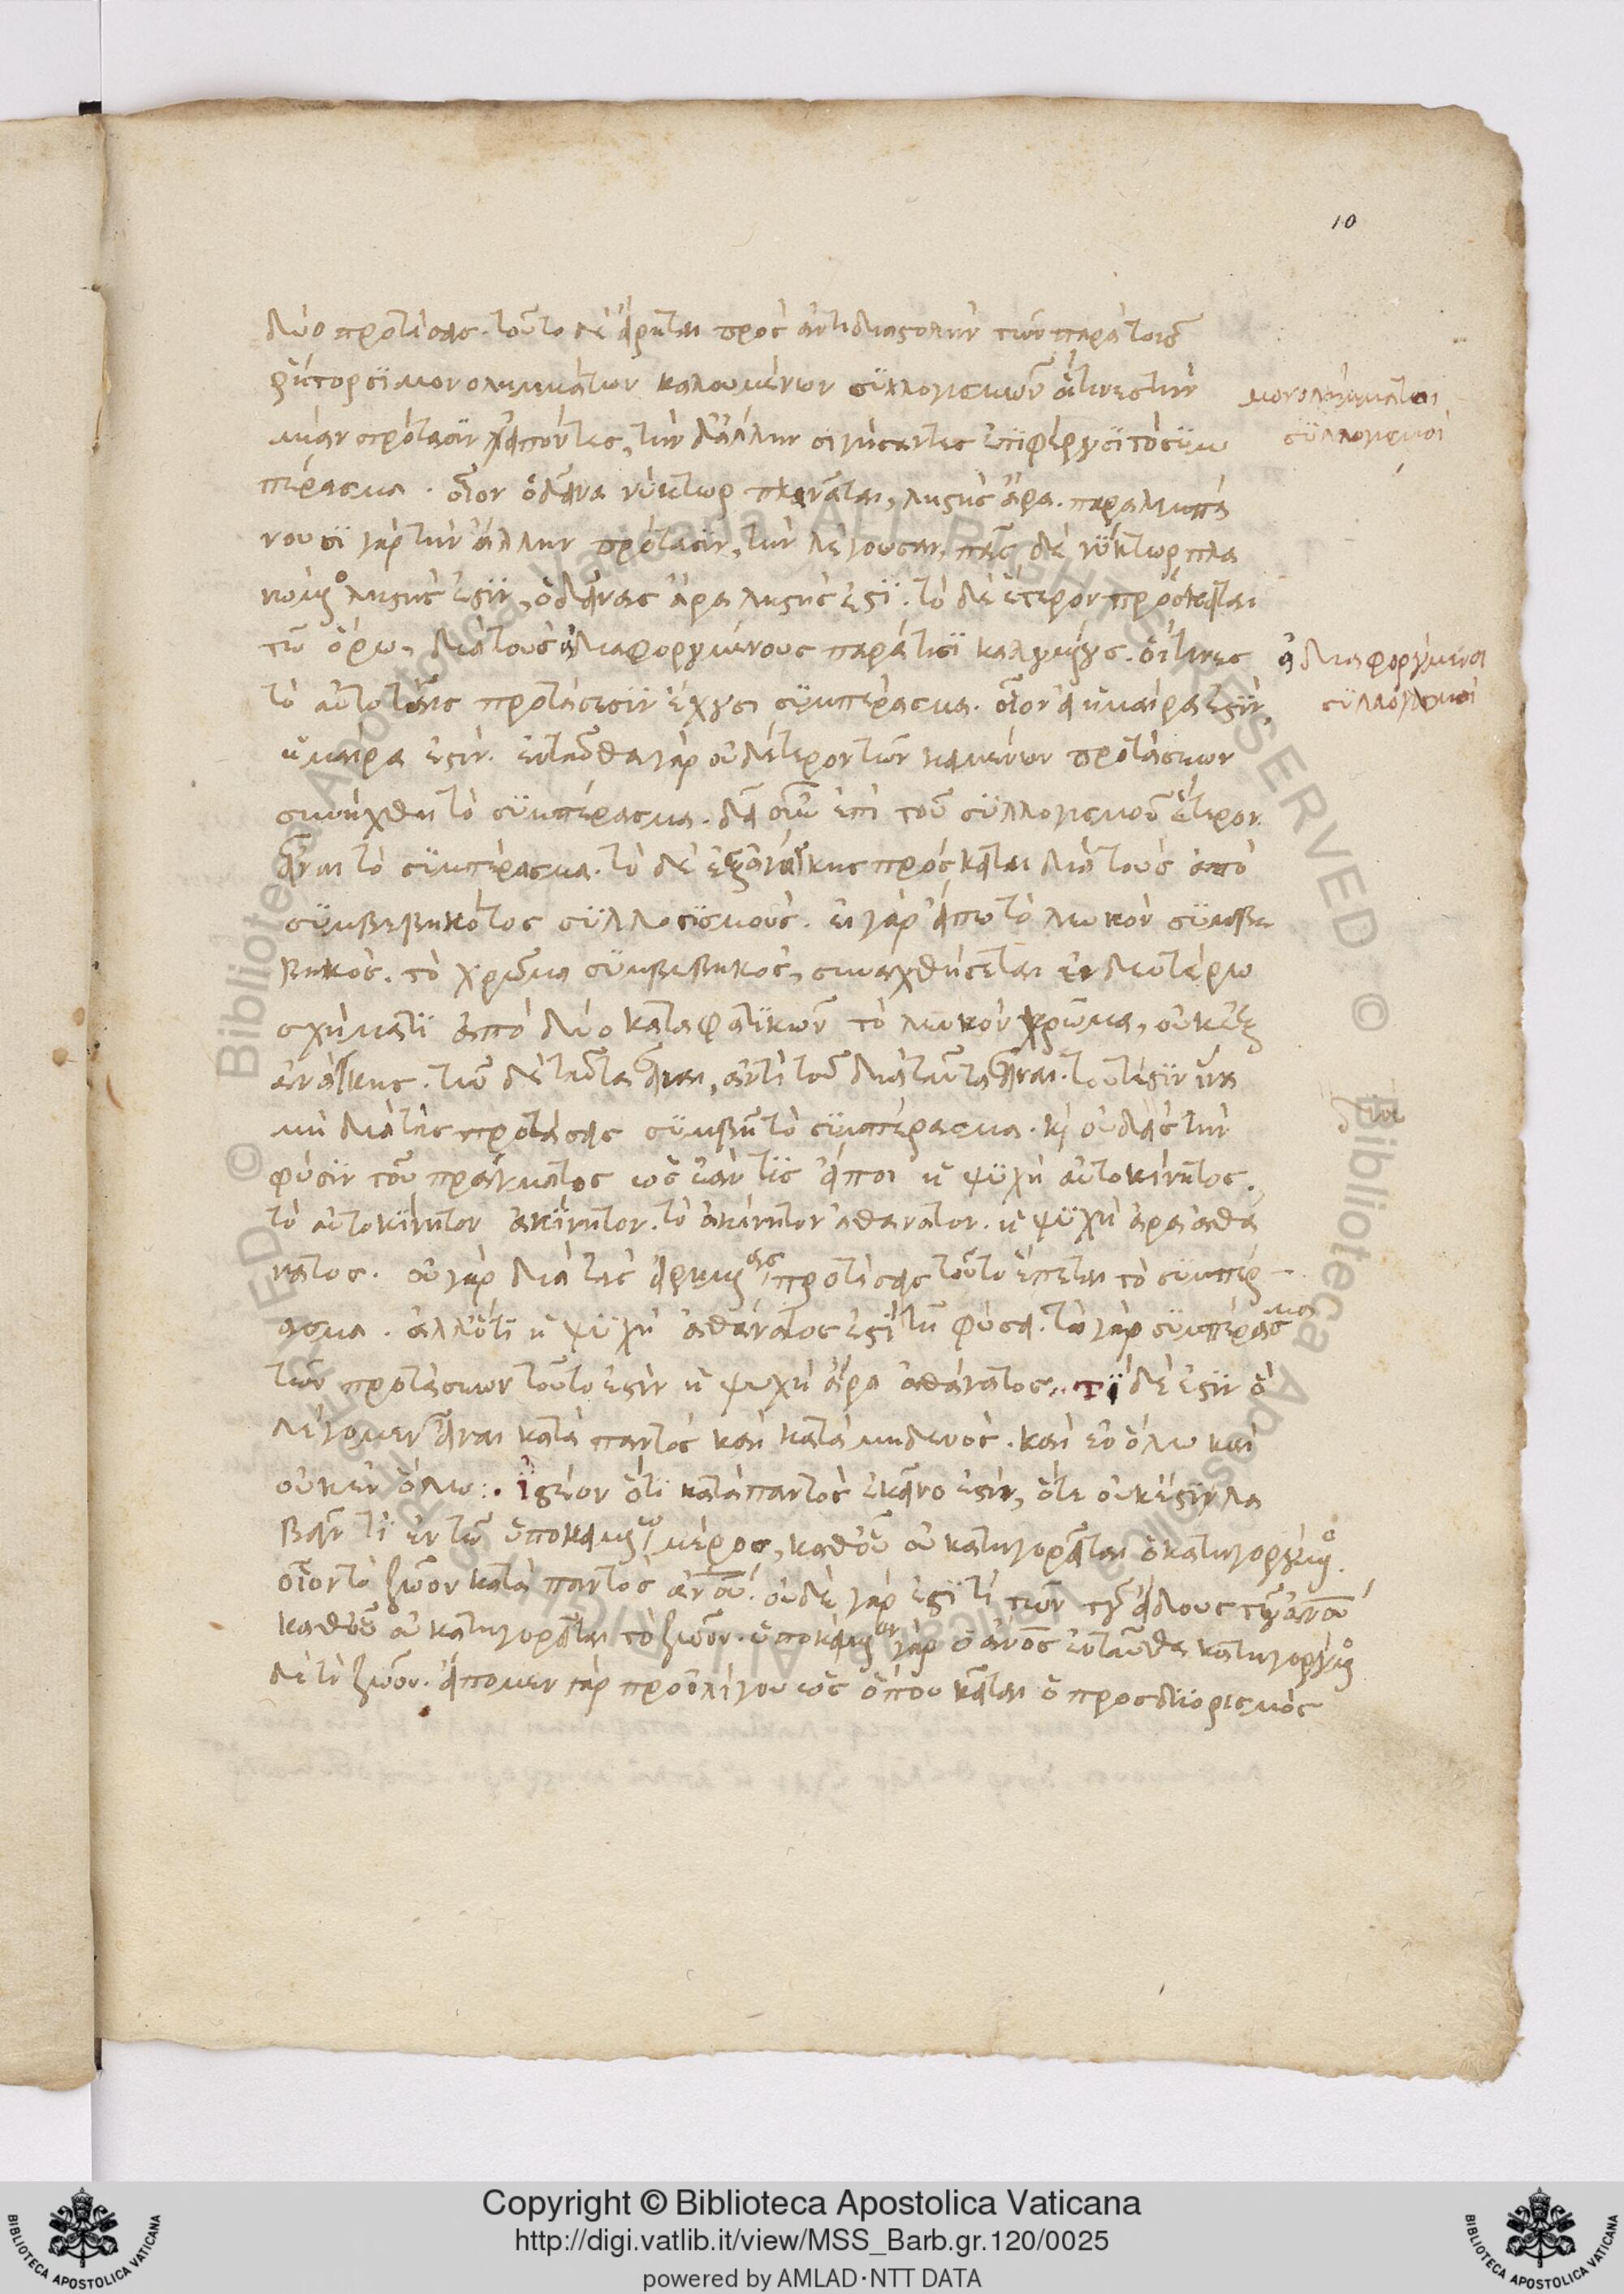 10
δύο προτάσεις. τοῦτο δὲ εἴρηται πρὸς ἀντιδιαστολὴν τῶν παρὰ τοῖς
ῥήτορσι μονολημμάτων καλουμένων συλλογισμῶν οἵτινες τὴν
μονολήμματοι
μίαν πρότασιν εἰπόντες, τὴν δ' ἄλλην σιγήσαντες ἐπιφέρουσι τὸ συμ
συλλογισμοί
πέρασμα. οἷον ὁ δεῖνα νύκτωρ πλανᾶται, ληστὴς ἄρα. παραλιμπά
νουσι γὰρ τὴν ἄλλην πρότασιν, τὴν λέγουσαν, πᾶς δὲ νύκτωρ πλα
νώμενος ληστής ἐστιν, ὁ δεῖνας ἄρα ληστής ἐστι. τὸ δὲ ἕτερον πρόσκειται
τῶ ὅρω, διὰ τοὺς ἀδιαφορουμένους παρά τισι καλουμένους. οἵτινες
ἀδιαφορούμενοι
τὸ αὐτὸ ταῖς προτάσεσιν ἔχουσι συμπέρασμα. οἷον εἰ ἡμέρα ἐστίν,
συλλογισμοί
ἡμέρα ἐστίν. ἐνταῦθα γὰρ οὐδέτερον τῶν κειμένων προτάσεων
συνήχθη τὸ συμπέρασμα. δεῖ οὖν ἐπὶ τοῦ συλλογισμοῦ ἕτερον
εἶναι τὸ συμπέρασμα. τὸ δὲ ἐξ ἀνάγκης πρόσκειται διὰ τοὺς ἀπὸ
συμβεβηκότος συλλογισμούς. εἰ γὰρ εἴπω τὸ λευκὸν συμβε
βηκός. τὸ χρῶμα συμβεβηκός, συναχθήσεται ἐν δευτέρω
σχήματι ἀπὸ δύο καταφατικῶν τὸ λευκὸν χρῶμα, οὐκ ἐξ
ἀνάγκης. τῶ δὲ ταῦτα εἶναι, ἀντὶ τοῦ διὰ ταῦτα εἶναι. τουτέστιν ἵνα
μὴ διὰ τὰς προτάσεις συμβῆ τὸ συμπέρασμα. κατὰ τὴν
φύσιν τοῦ πράγματος ὡς ἐάν τις εἴποι ἡ ψυχὴ αὐτοκίνητος.
τὸ αὐτοκίνητον ἀκίνητον. τὸ ἀκίνητον ἀθάνατον. ἡ ψυχὴ ἄρα ἀθά
νατος. οὐ γὰρ διὰ τὰς εἰρημένας προτάσεις τοῦτο ἕπεται τὸ συμπέρ
ασμα. ἀλλ' ὅτι ἡ ψυχὴ ἀθάνατος ἐστὶ τῆ φύσει. τὸ γὰρ συμπέρασμα
τῶν προτάσεων τοῦτο ἐστὶν ἡ ψυχὴ ἄρα ἀθάνατος. τί δέ ἐστιν ὃ
λέγομεν εἶναι κατὰ παντὸς καὶ κατὰ μηδενός. καὶ ἐν ὅλω καὶ
οὐκ ἐν ὅλω: ἰστέον ὅτι κατὰ παντὸς ἐκεῖνο ἐστίν, ὅτε οὐκ ἔστιν λα
βεῖν τι ἐν τῶ ὑποκειμένω μέρος, καθ' οὗ οὐ κατηγορεῖται ὁ κατηγορούμενος.
οἷον τὸ ζῶον κατὰ παντὸς ἀνου. οὐδὲ γὰρ ἐστί τι τῶν τοῦ εἴδους τοῦ ἀνου
καθ' οὗ οὐ κατηγορεῖται τὸ ζῶον. ὑποκείμενον γὰρ ὁ ανος ἐνταῦθα κατηγορούμενος
δὲ τὸ ζῶον. εἴπομεν γὰρ πρὸ ὀλίγου ὡς ὅπου κεῖται ὁ προσδιορισμὸς
Copyright © Biblioteca Apostolica Vaticana
http://digi.vatlib.it/view/MSS_Barb.gr.120/0025
powered by AMLAD·NTT DATA
BIBLIOTECA APOSTOLICA VATICANA
BIBLIOTECA APOSTOLICA VATICANA